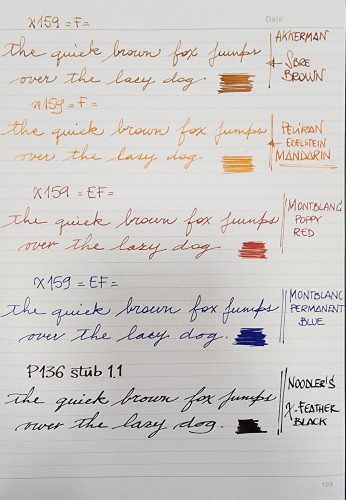 Date:
X159 =F=
AKKERMAN
the quick brown fox jumps
← SBRE
over the lazy dog
BROWN
X159 = F =
the quick brown fox jumps
PELIKAN
EDELSTEIN
over the lazy dog
MANDARIN
X159 = EF =
MONTBLANC
the quick brown fox jumps
POPPY
over the lazy dog
RED
X159 = EF =
MONTBLANC
the quick brown fox jumps
PERMANENT
over the lazy dog.
BLUE
P136 stub 1.1
NOODLER'S
the quick brown fox jumps
X-FEATHER
over the lazy dog.
BLACK